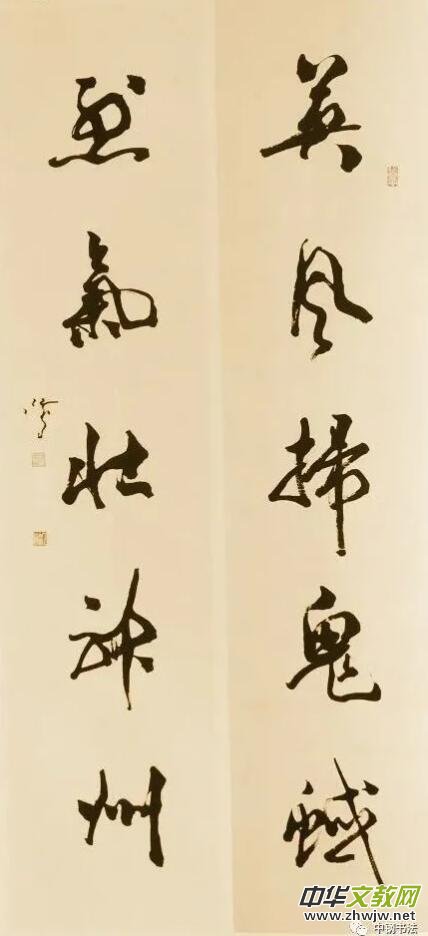 英風掃鬼蜮
烈氣壯神州
中华文教网
www.zhwjw.net
中钢书法